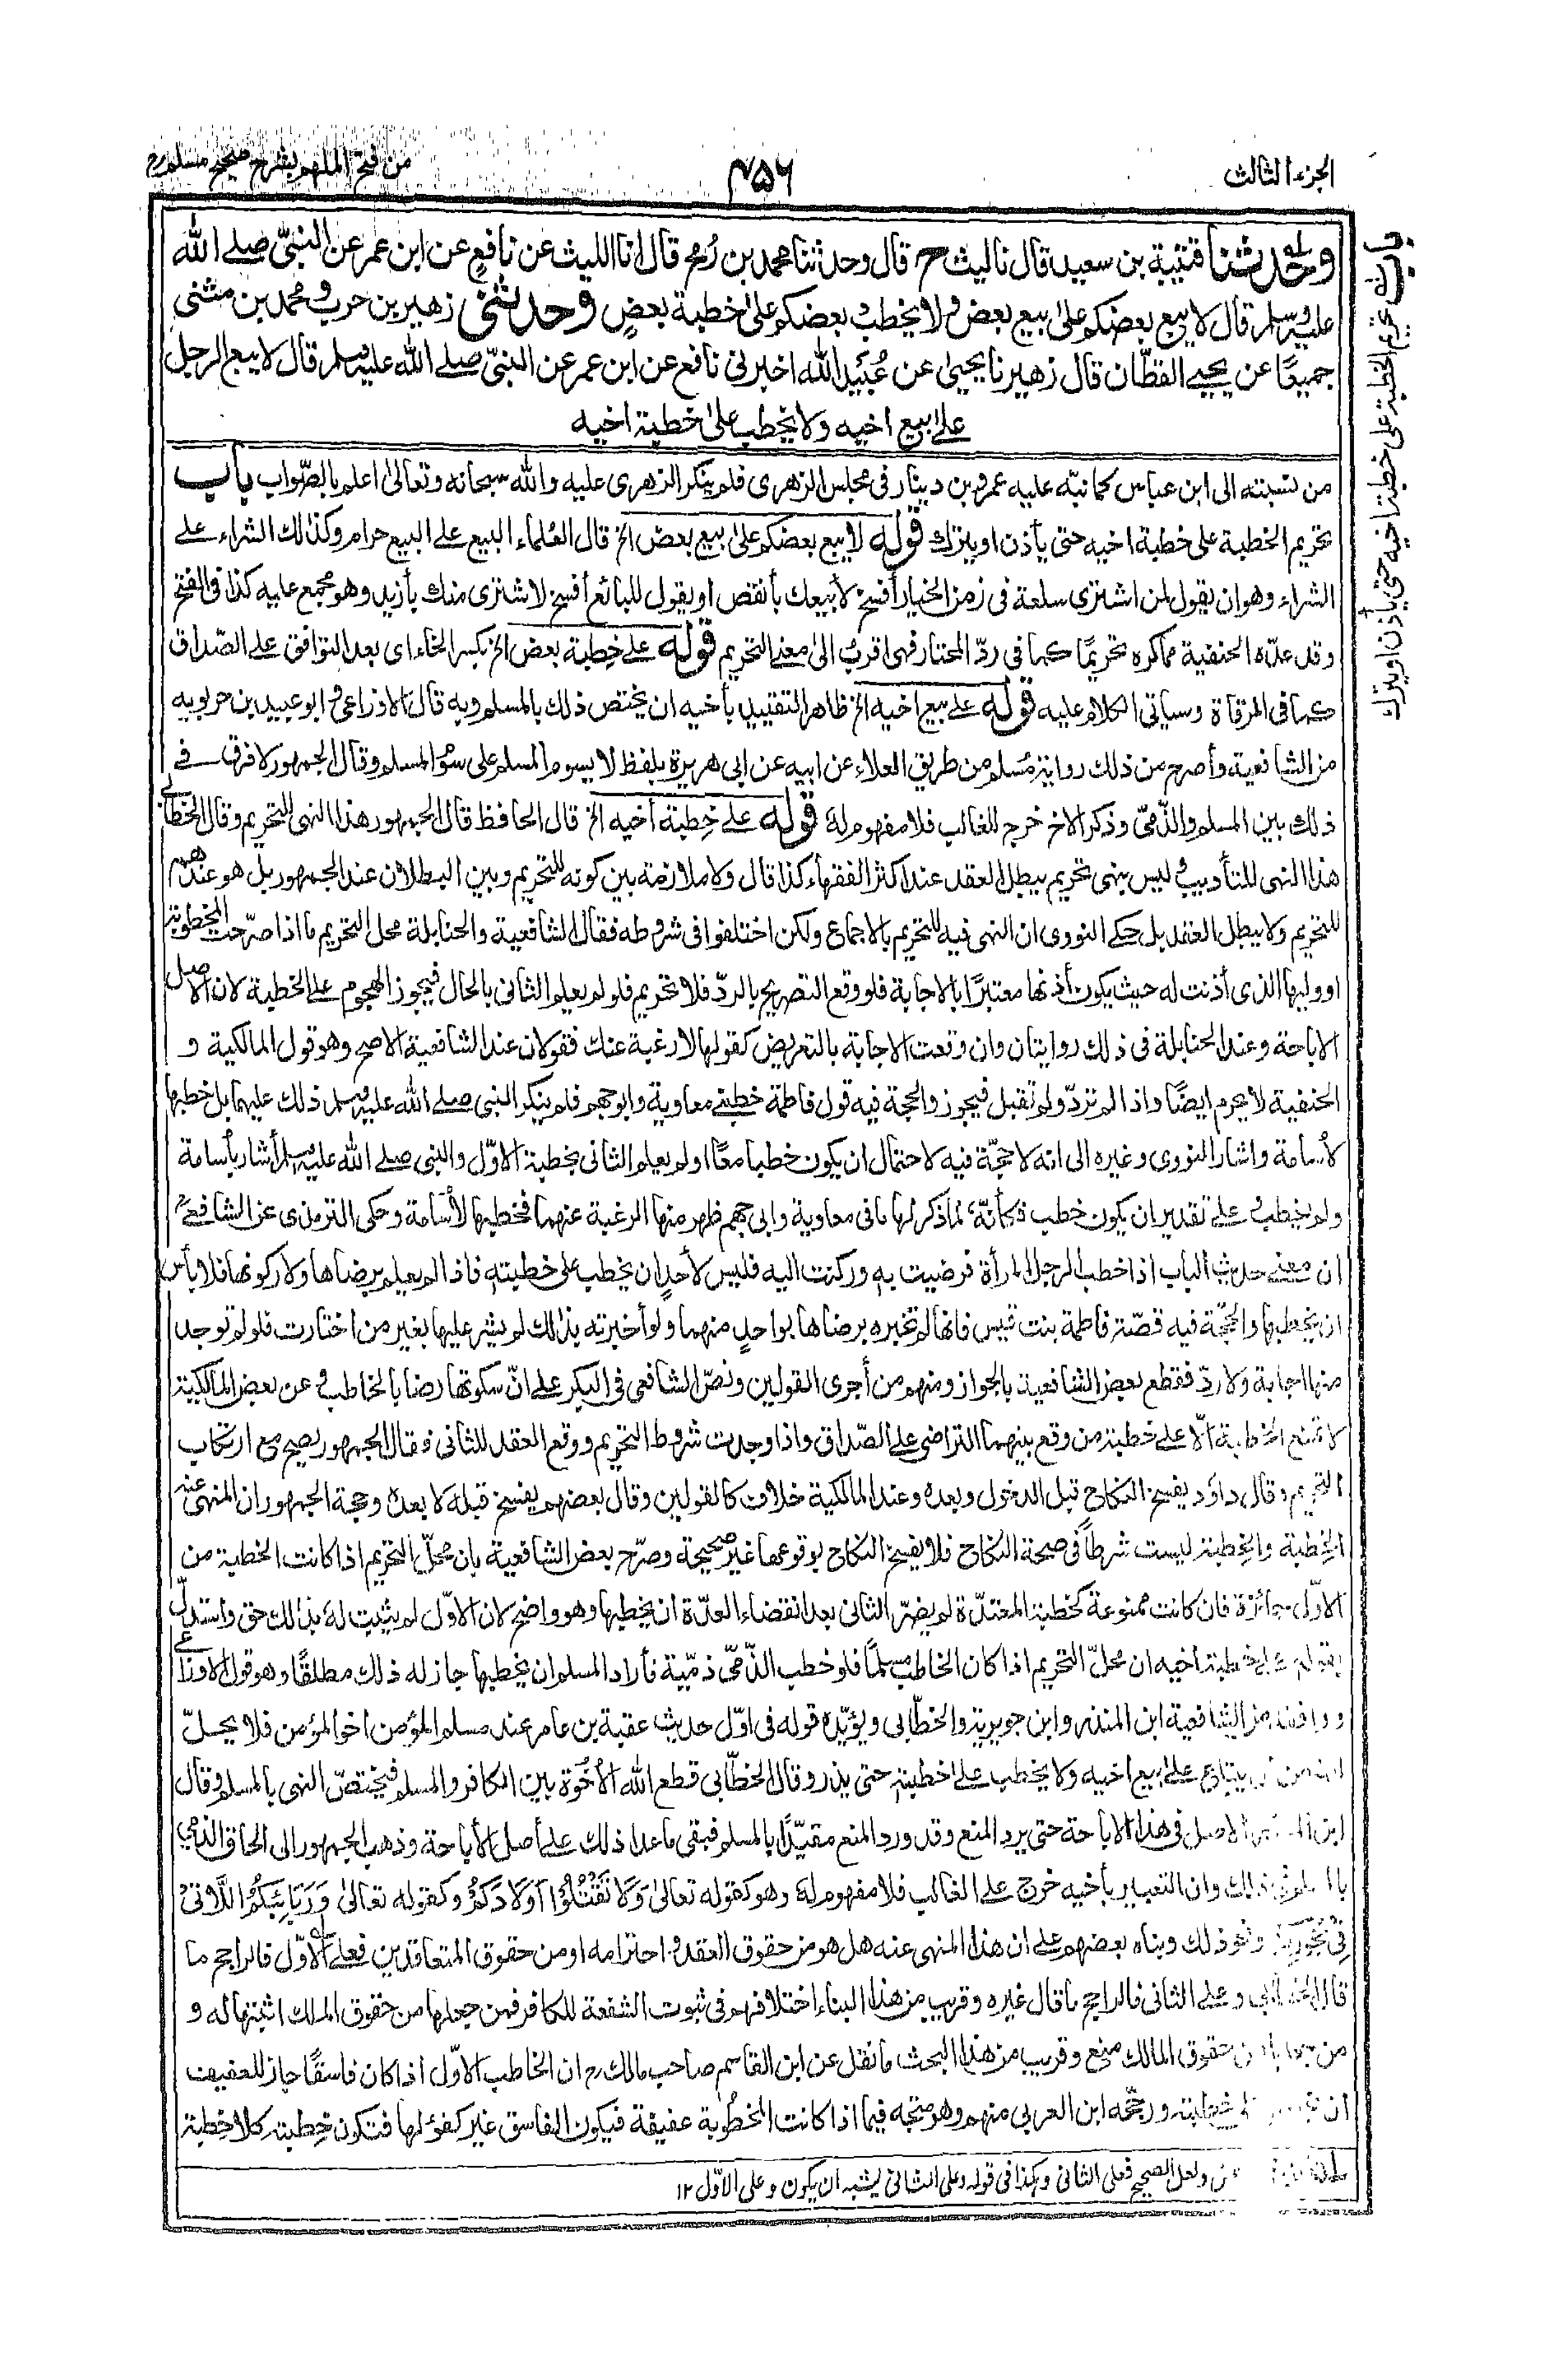 الجزء الثالث
۴۵۶
من فتح الملهم بشرح صحيح مسلم
باب تحريم الخطبة على خطبة اخيه حتى يأذن او يترك
وحدثنا قتيبة بن سعيد قال نا ليث ح قال وحدثنا محمد بن رُمح قال انا الليث عن نافع عن ابن عمر عن النبيّ صلى الله
عليه وسلم قال لا يبع بعضكم على بيع بعض ولا يخطب بعضكم على خطبة بعضٍ وحدثنى زهير بن حرب ومحمد بن مثنى
جميعًا عن يحيى القطّان قال زهير نا يحيىٰ عن عُبَيد الله اخبرنى نافع عن ابن عمر عن النبيّ صلى الله عليه وسلم قال لا يبع الرجل
على بيع اخيه ولا يخطب على خطبة اخيه
من نسبته الى ابن عباس كما نبّه عليه عمرو بن دينار فى مجلس الزهرى فلم ينكر الزهرى عليه والله سبحانه وتعالىٰ اعلم بالصّواب باب
تحريم الخطبة على خطبة اخيه حتى يأذن او يترك قوله لا يبع بعضكم على بيع بعض الخ قال العُلماء البيع على البيع حرام وكذلك الشراء على
الشراء وهو ان يقول لمن اشترى سلعة فى زمن الخيار أفسخ لأبيعك بأنقص او يقول للبائع أفسخ لاشترى منك بأزيد وهو مجمع عليه كذا فى الفتح
وقد عدّه الحنفية مما كره تحريمًا كما فى ردّ المحتار فهى اقرب الىٰ معنى التحريم قوله على خِطبة بعض الخ بكسر الخاء اى بعد التوافق على الصّداق
كما فى المرقاة وسيأتى الكلام عليه قوله على بيع اخيه الخ ظاهر التقييد بأخيه ان يختص ذلك بالمسلم وبه قال الاوزاعى وابو عبيد بن حربويه
من الشافعية وأصرح من ذلك رواية مُسلم من طريق العلاء عن ابيه عن ابى هريرة بلفظ لا يسوم المسلم على سوم المسلم وقال الجمهور لا فرق فى
ذلك بين المسلم والذّمّى وذكر الاخ خرج للغالب فلا مفهوم لهٗ قوله على خِطبة أخيه الخ قال الحافظ قال الجمهور هذا النهى للتحريم وقال الخطابى
هذا النهى للتأديب وليس بنهى تحريم يبطل العقد عند اكثر الفقهاء كذا قال ولا ملازمة بين كونه للتحريم وبين البطلان عند الجمهور بل هو عندهم
للتحريم ولا يبطل العقد بل حكى النووى ان النهى فيه للتحريم بالاجماع ولكن اختلفوا فى شروطه فقال الشافعية والحنابلة محل التحريم ما اذا صرّحت المخطوبة
او وليها الذى أذنت له حيث يكون أذنها معتبرًا بالاجابة فلو وقع التصريح بالردّ فلا تحريم فلو لم يعلم الثانى بالحال فيجوز الهجوم على الخطبة لان الاصل
الاباحة وعند الحنابلة فى ذلك روايتان وان وقعت الاجابة بالتعريض كقولها لا رغبة عنك فقولان عند الشافعية الاصح وهو قول المالكية و
الحنفية لا يحرم ايضًا واذا لم تردّ ولم تقبل فيجوز والحجة فيه قول فاطمة خطبنى معاوية وابو جهم فلم ينكر النبى صلى الله عليه وسلم ذلك عليهما بل خطبها
لأسامة واشار النووى وغيره الى انه لا حجّة فيه لاحتمال ان يكون خطبا معًا او لم يعلم الثانى بخطبة الاوّل والنبى صلى الله عليه وسلم أشار بأسامة
ولم يخطب وعلى تقدير ان يكون خطب فكأنّه لما ذكر لها ما فى معاوية وابى جهم ظهر منها الرغبة عنهما فخطبها لأسامة وحكى الترمذى عن الشافعى
ان معنى حديث الباب اذا خطب الرجل المرأة فرضيت به وركنت اليه فليس لأحدٍ ان يخطب على خطبته فاذا لم يعلم برضاها ولا ركونها فلا بأس
ان يخطبها والحجّة فيه قصّة فاطمة بنت قيس فانها لم تخبره برضاها بواحدٍ منهما ولو أخبرته بذلك لم يشر عليها بغير من اختارت فلو لم توجد
منها اجابة ولا ردّ فقطع بعض الشافعية بالجواز ومنهم من أجرى القولين ونصّ الشافعى فى البكر على انّ سكوتها رضا بالخاطب وعن بعض المالكية
لا تمنع الخطبة الّا على خطبة من وقع بينهما التراضى على الصّداق واذا وجدت شروط التحريم ووقع العقد للثانى فقال الجمهور يصح مع ارتكاب
التحريم وقال داوٗد يفسخ النكاح قبل الدخول وبعده وعند المالكية خلاف كالقولين وقال بعضهم يفسخ قبلهٗ لا بعدهٗ وحجة الجمهور ان المنهى عنه
الخِطبة والخِطبة ليست شرطاً فى صحة النكاح فلا يفسخ النكاح بوقوعها غير صحيحة وصرّح بعض الشافعية بان محلّ التحريم اذا كانت الخطبة من
الاوّل جائزة فان كانت ممنوعة كخطبة المعتدّة لم يضرّ الثانى بعد انقضاء العدّة ان يخطبها وهو واضح لان الاوّل لم يثبت لهٗ بذلك حق واستدلّ
بقوله على خطبة أخيه ان محلّ التحريم اذا كان الخاطب مسلمًا فلو خطب الذّمّى ذمّية فأراد المسلم ان يخطبها جاز له ذلك مطلقًا وهو قول الاوزاعى
ووافقه من الشافعية ابن المنذر وابن جويرية والخطّابى ويؤيّده قوله فى اوّل حديث عقبة بن عامر عند مسلم المؤمن اخو المؤمن فلا يحلّ
يبتاع على بيع اخيه ولا يخطب على خطبته حتى يذر وقال الخطّابى قطع الله الأخُوّة بين الكافر والمسلم فيختصّ النهى بالمسلم وقال
ابن الاصل فى هذا الاباحة حتى يرد المنع وقد ورد المنع مقيّدًا بالمسلم فبقى ما عدا ذلك على أصل الأباحة وذهب الجمهور الى الحاق الذمى
ذلك وان التعبير بأخيه خرج على الغالب فلا مفهوم لهٗ وهو كقوله تعالىٰ وَلَا تَقْتُلُوْا اَوْلَادَكُمْ وكقوله تعالىٰ وَرَبَائِبُكُمُ اللَّاتِىْ
ونحو ذلك وبناه بعضهم على ان هذا المنهى عنه هل هو من حقوق العقد واحترامه او من حقوق المتعاقدين فعلى الاوّل فالراجح ما
قال وعلى الثانى فالراجح ما قال غيره وقريب من هذا البناء اختلافهم فى ثبوت الشفعة للكافر فمن جعلها من حقوق الملك اثبتها له و
من حقوق المالك منع وقريب من هذا البحث ما نقل عن ابن القاسم صاحب مالك رح ان الخاطب الاوّل اذا كان فاسقًا جاز للعفيف
ان خطبته ورجّحه ابن العربى منهم وهو متجه فيما اذا كانت المخطُوبة عفيفة فيكون الفاسق غير كفوء لها فتكون خِطبته كلا خطبة
ولعل الصحيح فعلى الثانى وكذا فى قوله وعلى الثانى يشبه ان يكون وعلى الاوّل ١٢